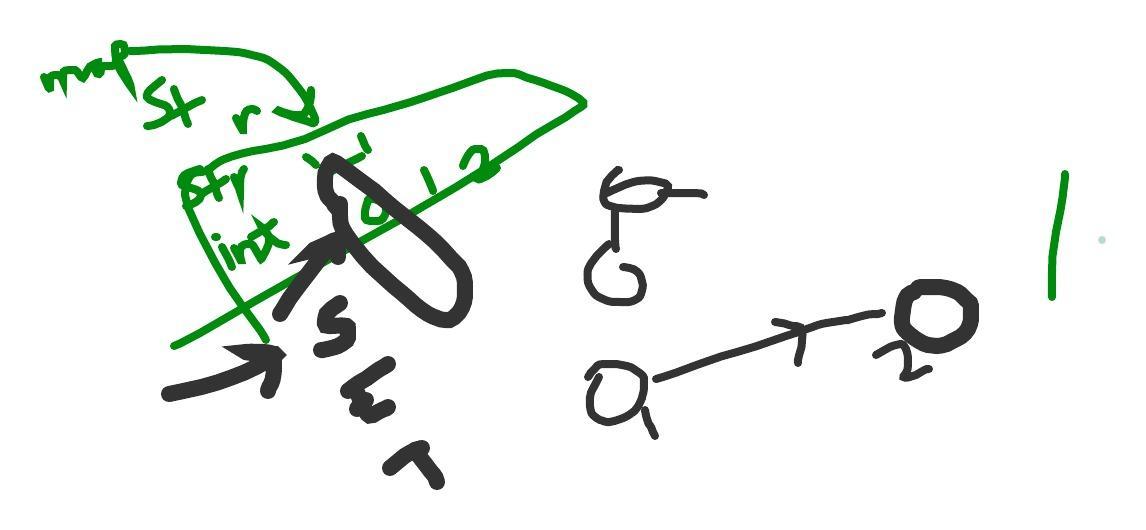 map
str
str
int
0 1 2
SET
1
2